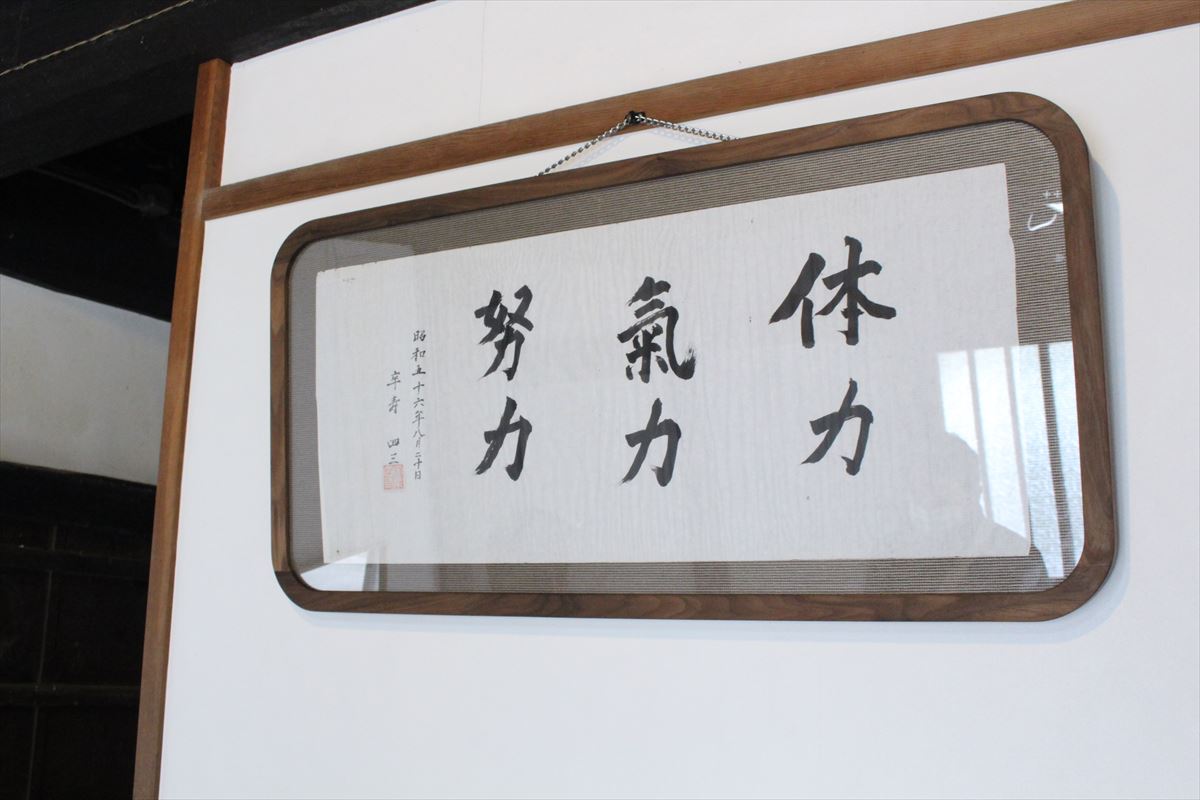 体力
氣力
努力
昭和五十六年八月二十日
卒寿 四三